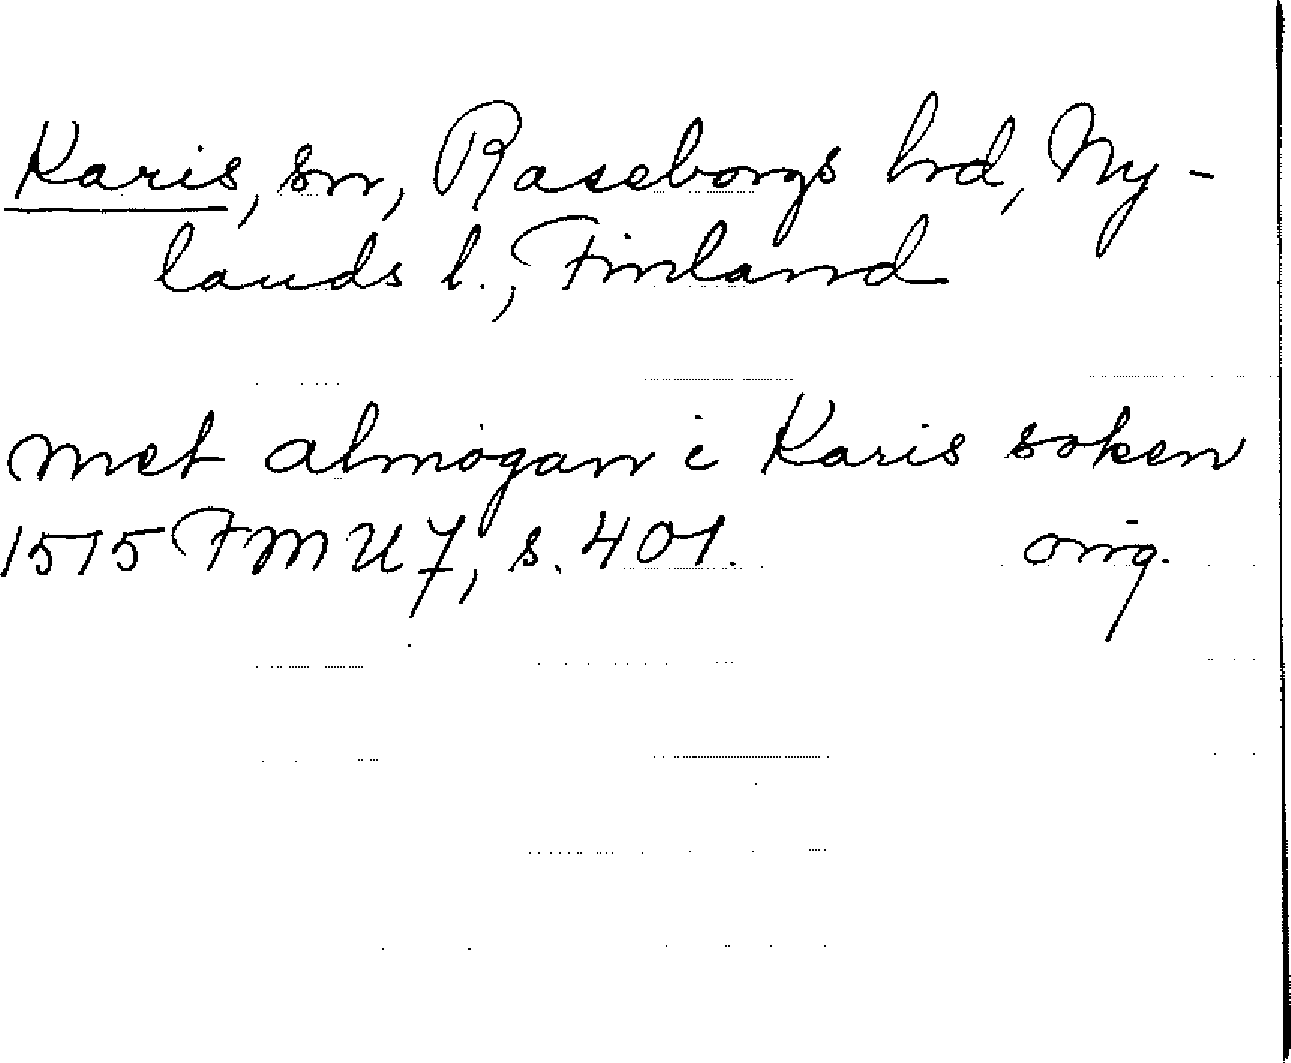 Karis, sn, Raseborgs hrd, Ny-
lands l., Finland
met almogan i Karis soken
1515 FMU 7, s. 401. orig.